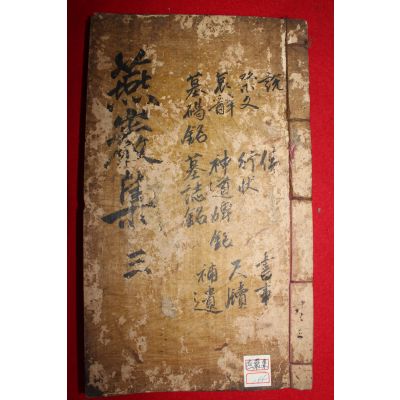 說 傳 書事
祭文 行狀 尺牘
哀辭 神道碑銘 補遺
墓碣銘 墓誌銘
燕巖集 三